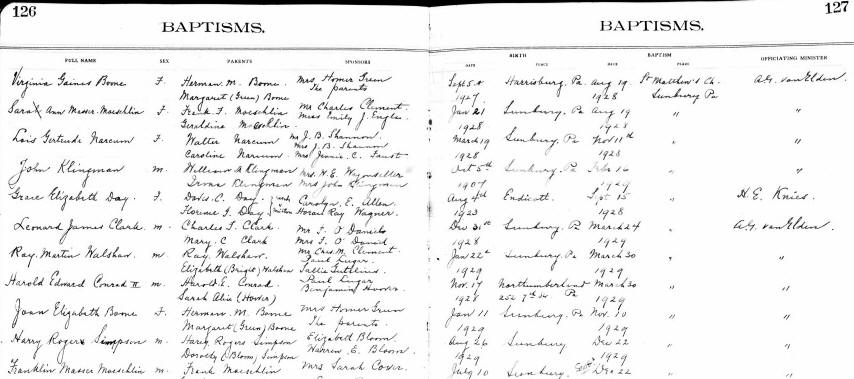 126
BAPTISMS.
FULL NAME SEX PARENTS SPONSORS
Virginia Gaines Boone F. Herman M. Boone Mrs Homer Green
Margaret (Green) Boone The parents
Sarah Ann Masser Moeschlin F. Frank F. Moeschlin Mr Charles Clement
Geraldine Moeschlin Miss Emily J. Engles
Lois Gertrude Narcum F. Walter Narcum Mr J. B. Shannon
Mrs J. B. Shannon
Caroline Narcum Mrs Jennie C. Faust
John Klingman m. William Klingman Mrs. H. E.
Klingman Mrs John Klingman
Grace Elizabeth Day. F. David C. Day. Carolyn E. Allen
Florence I. Day Horace Ray Wagner.
Leonard James Clark. m. Charles T. Clark. Mr F. O'Daniel
Mary C Clark Mrs F. O'Daniel
Ray Martin Walshaw. m. Ray Walshaw. Mr Chas. M. Clement
Paul Lugar
Elizabeth (Bright) Walshaw Sallie
Harold Edward Conrad II m. Harold E. Conrad. Paul Lugar
Benjamin Hoover
Sarah Alice (Hoover)
Joan Elizabeth Boone F. Herman M. Boone Mrs Homer Green
Margaret (Green) Boone The parents.
Harry Rogers Simpson m. Harry Rogers Simpson Elizabeth Bloom
Dorothy (Bloom) Simpson Warren E. Bloom.
Franklin Masser Moeschlin m. Frank Moeschlin Mrs Sarah Cover.
127
BAPTISMS.
BIRTH BAPTISM
DATE PLACE DATE PLACE OFFICIATING MINISTER
Sept 5th Harrisburg, Pa. Aug 19. St Matthew's Ch. A.G. van Elden.
1927 1928 Sunbury Pa
Jan 21 Sunbury, Pa Aug 19 " "
1928 1928
March 19 Sunbury, Pa Nov 11th " "
1928 1928
Oct 5th Sunbury, Pa Feb 16 " "
1907 1929
Aug 4th Endicott. Sept 15 " H. E. Knies.
1923 1928
Dec 31st Sunbury, Pa March 24 " A.G. van Elden.
1928 1929
Jan 22nd Sunbury, Pa March 30 " "
1929 1929
Nov. 17 Northumberland March 30 " "
1928 252 7th St Pa 1929
Jan 11 Sunbury, Pa. Nov. 10 " "
1929 1929
Aug 26 Sunbury Dec 22 " "
1929 1929
July 10 Sunbury Dec 22 " "